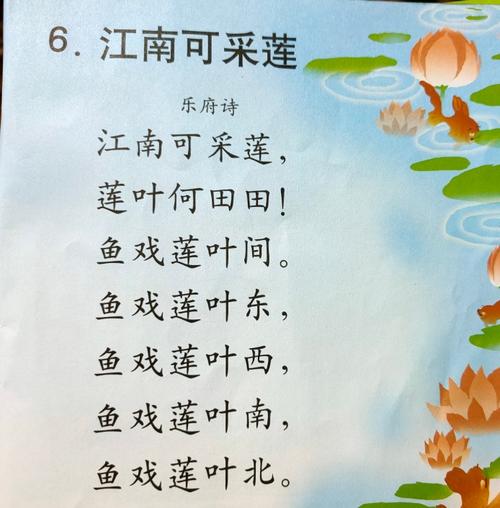 6. 江南可采莲
乐府诗
江南可采莲，
莲叶何田田！
鱼戏莲叶间。
鱼戏莲叶东，
鱼戏莲叶西，
鱼戏莲叶南，
鱼戏莲叶北。